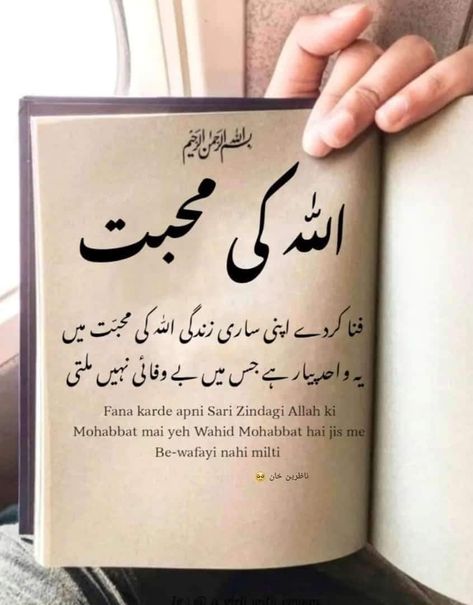 بسم اللہ الرحمن الرحیم
اللہ کی محبت
فنا کردے اپنی ساری زندگی اللہ کی محبّت میں
یہ واحد پیار ہے جس میں بے وفائی نہیں ملتی
Fana karde apni Sari Zindagi Allah ki
Mohabbat mai yeh Wahid Mohabbat hai jis me
Be-wafayi nahi milti
ناظرین خان 🥺